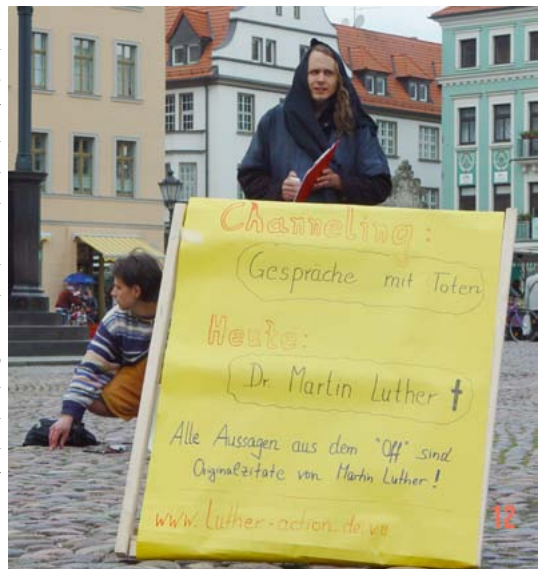 Channeling:
Gespräche mit Toten
Heute:
Dr. Martin Luther ✝
Alle Aussagen aus dem "Off" sind
Originalzitate von Martin Luther!
www.luther-action.de.vu
12